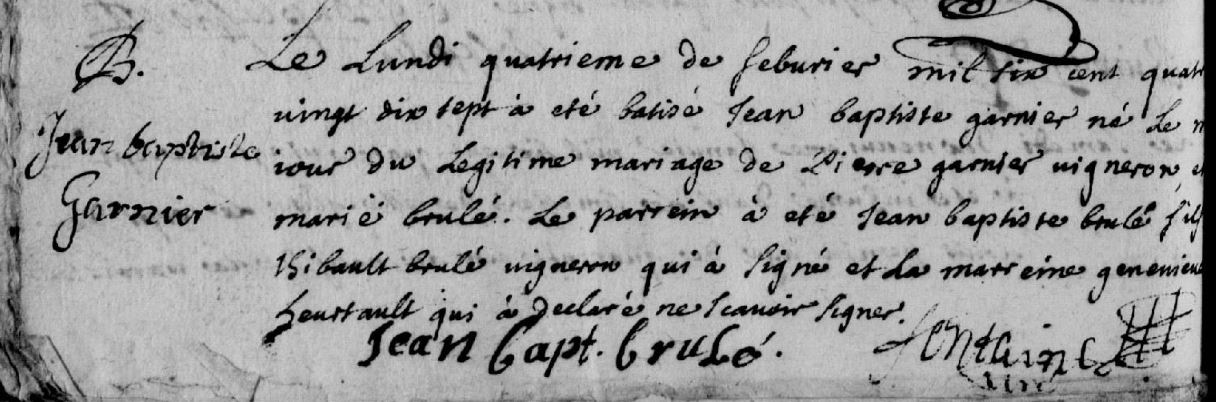 B.
Jean baptiste
Garnier
Le Lundi quatrieme de feburier mil six cent quatr
vingt dix sept à eté batisé Jean baptiste garnier né Le m
iour du Legitime mariage de Pierre garnier uigneron, e
marië brulé. Le parrein à eté Jean baptiste brulé fils
thibault brulé uigneron qui à signé et La marreine geneuieue
heurtault qui à declaré ne scauoir signer.
Jean bapt. brulé.
fontaine